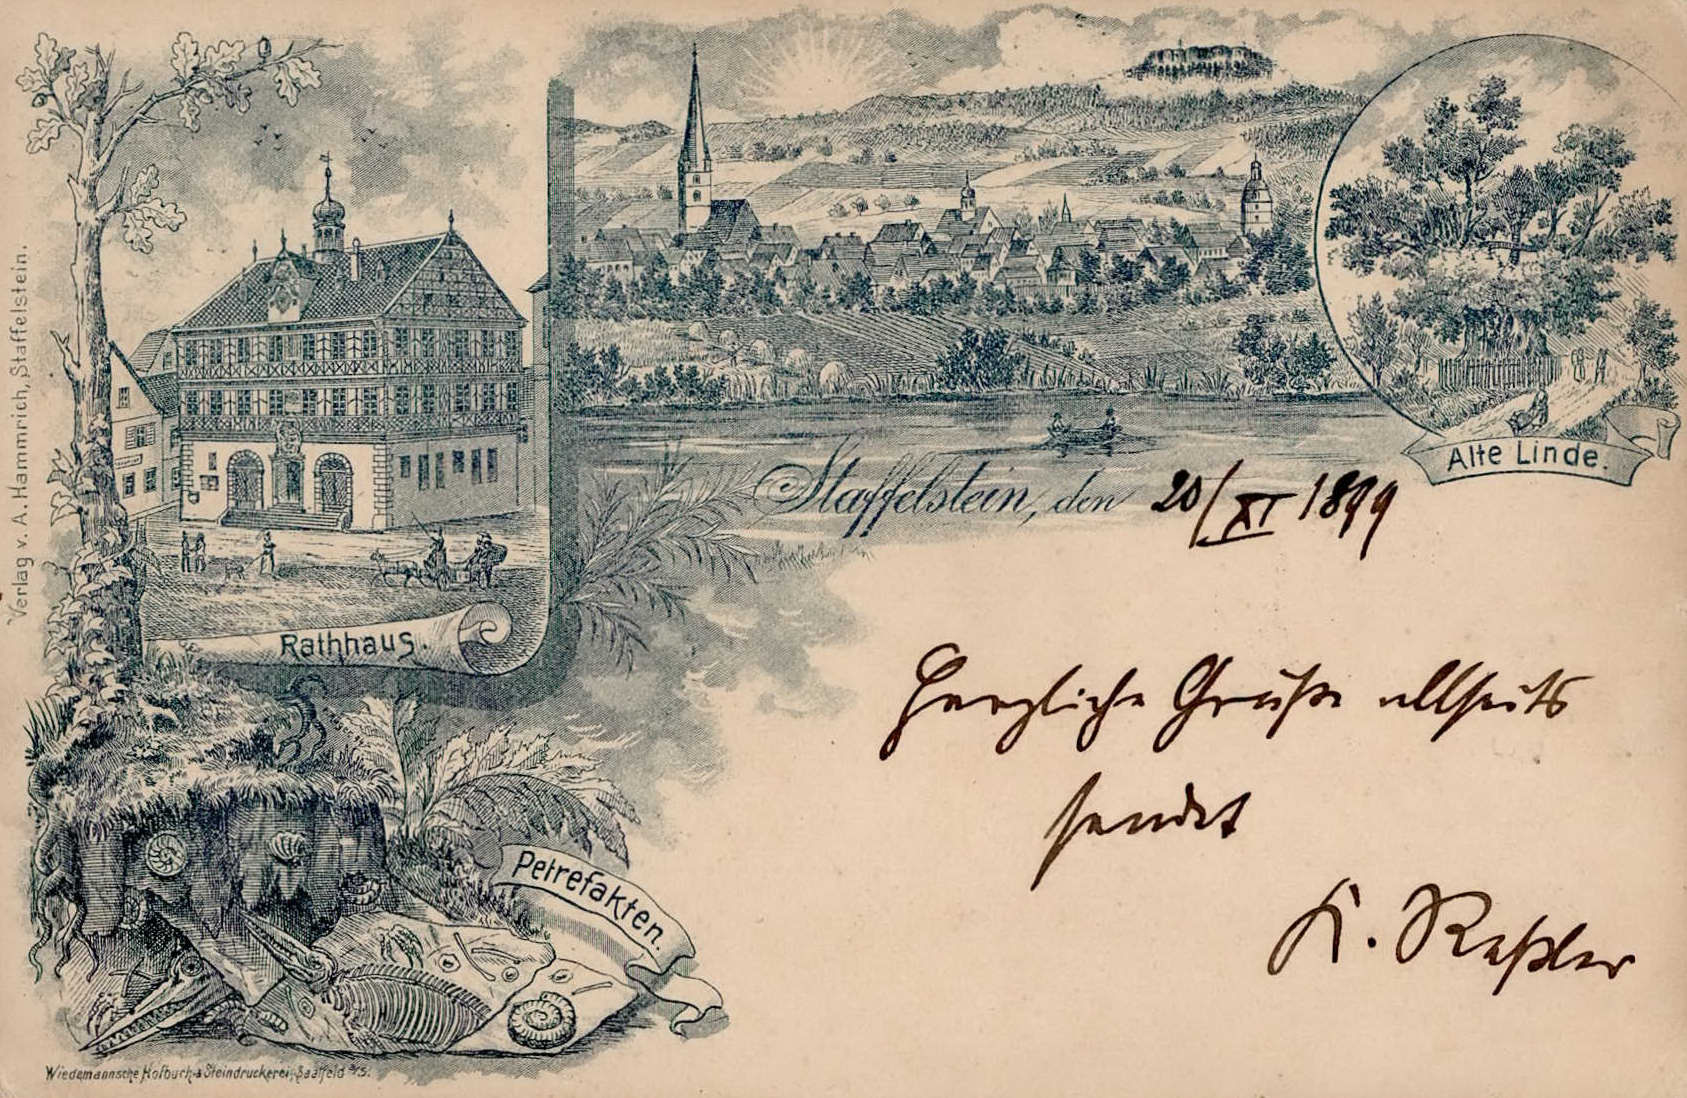 Verlag v. A. Hammrich, Staffelstein.
Rathhaus.
Alte Linde.
Staffelstein, den 20/XI 1899
Herzliche Grüße allseits
sendet
K. Keßler
Petrefakten.
Wiedemannsche Hofbuch- & Steindruckerei, Saalfeld a/S.